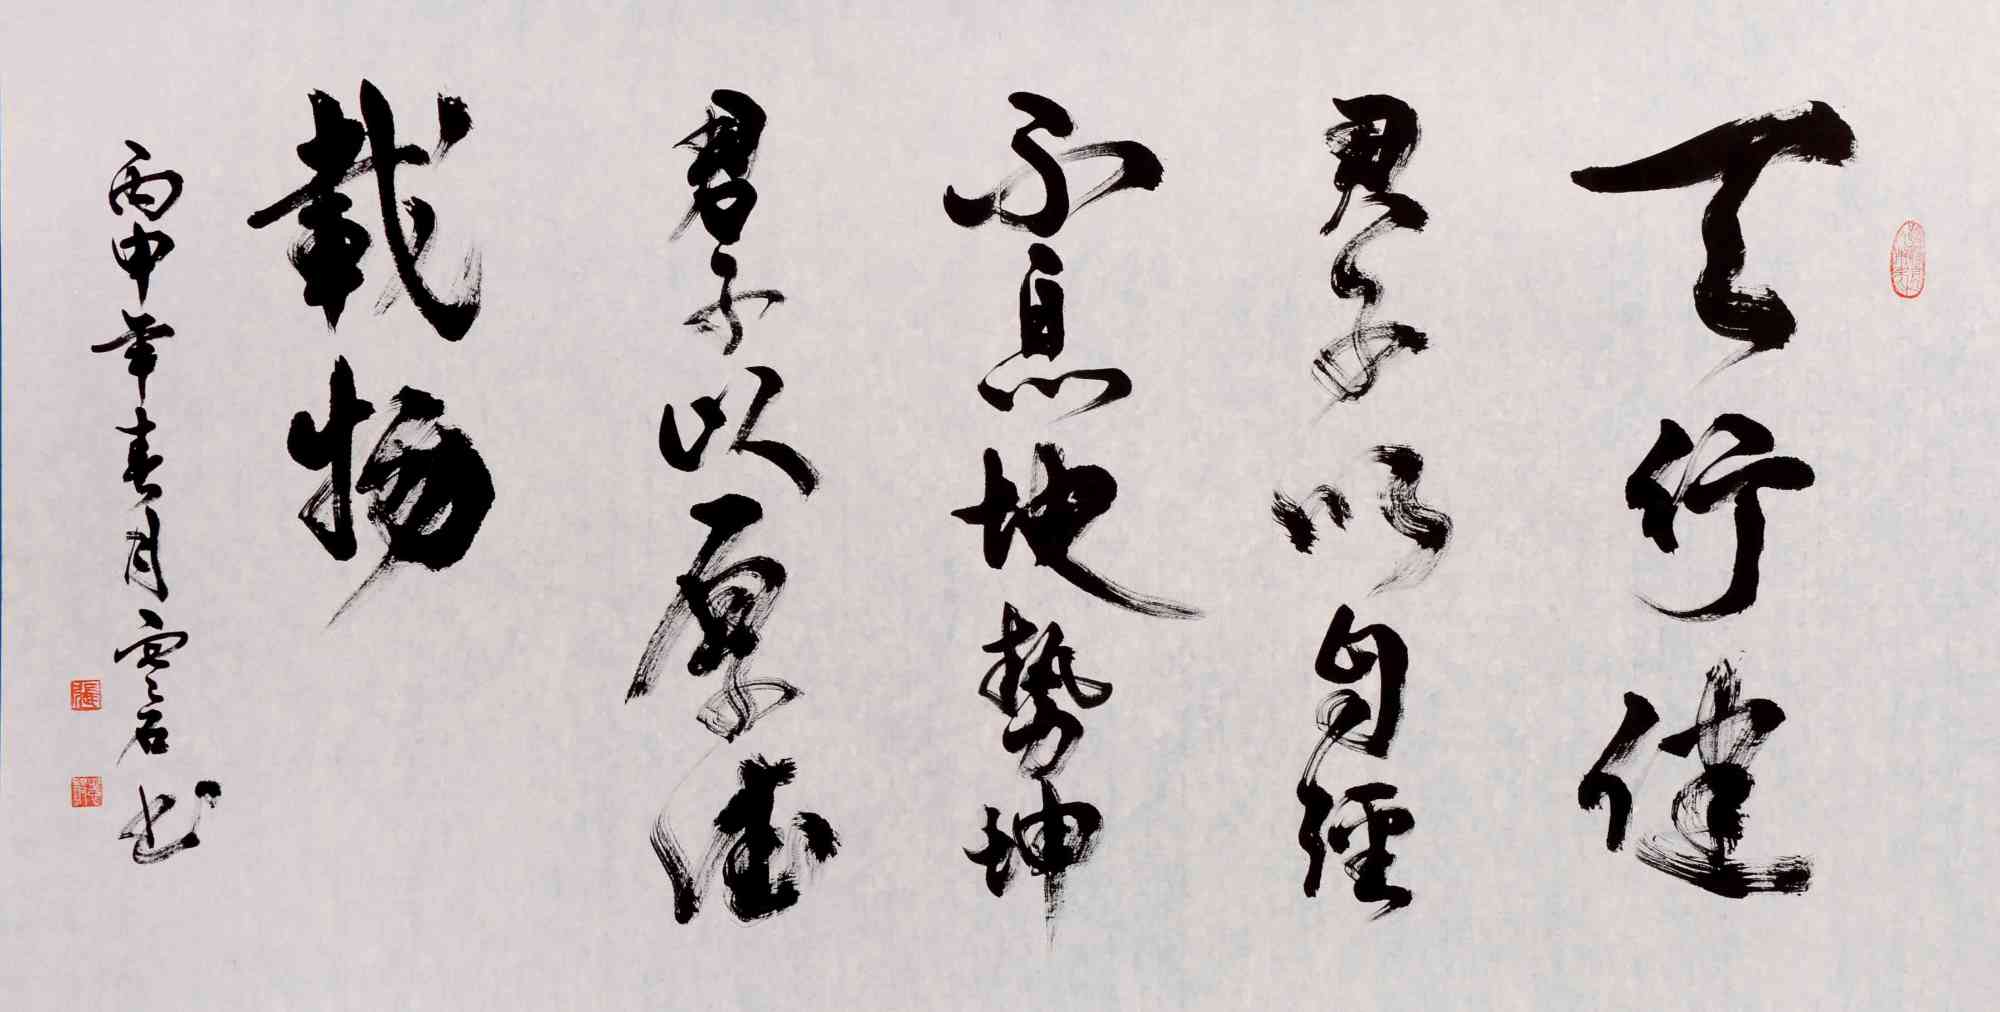 天行健
君子以自强
不息地势坤
君子以厚德
載物
丙申年春月雲石书